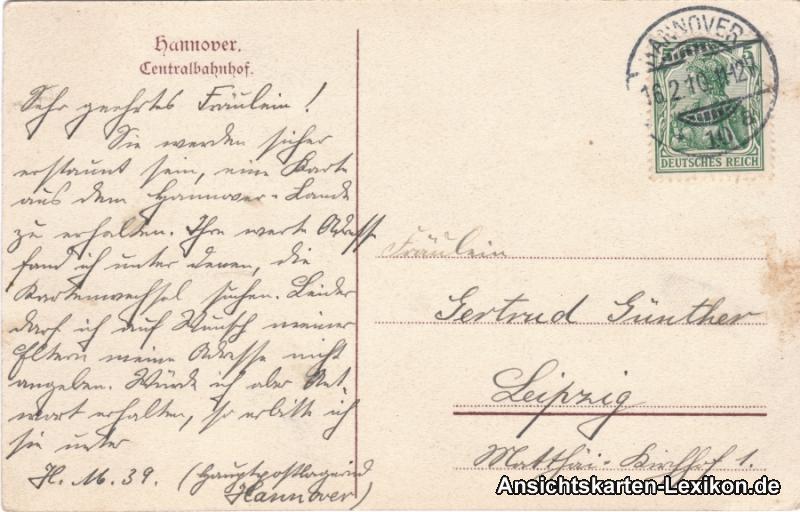 Hannover.
Centralbahnhof.
Sehr geehrtes Fräulein!
Sie werden sicher
erstaunt sein, eine Karte
aus dem Hannover-Lande
zu erhalten. Ihre werte Adresse
fand ich unter denen, die
Kartenwechsel suchen. Leider
darf ich auf Wunsch meiner
Eltern meine Adresse nicht
angeben. Würde ich aber Ant-
wort erhalten, so erbitte ich
sie unter
H. M. 39. (Hauptpostlagernd
Hannover)
HANNOVER
16.2.10.11-12V.
1 a
5
DEUTSCHES REICH
Fräulein
Gertrud Günther
Leipzig
Matthäi-Kirchhof 1.
Ansichtskarten-Lexikon.de